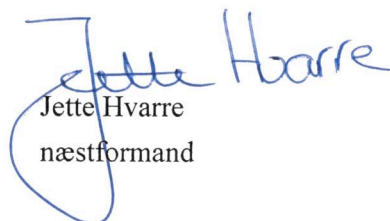 Jette Hvarre
Jette Hvarre
næstformand